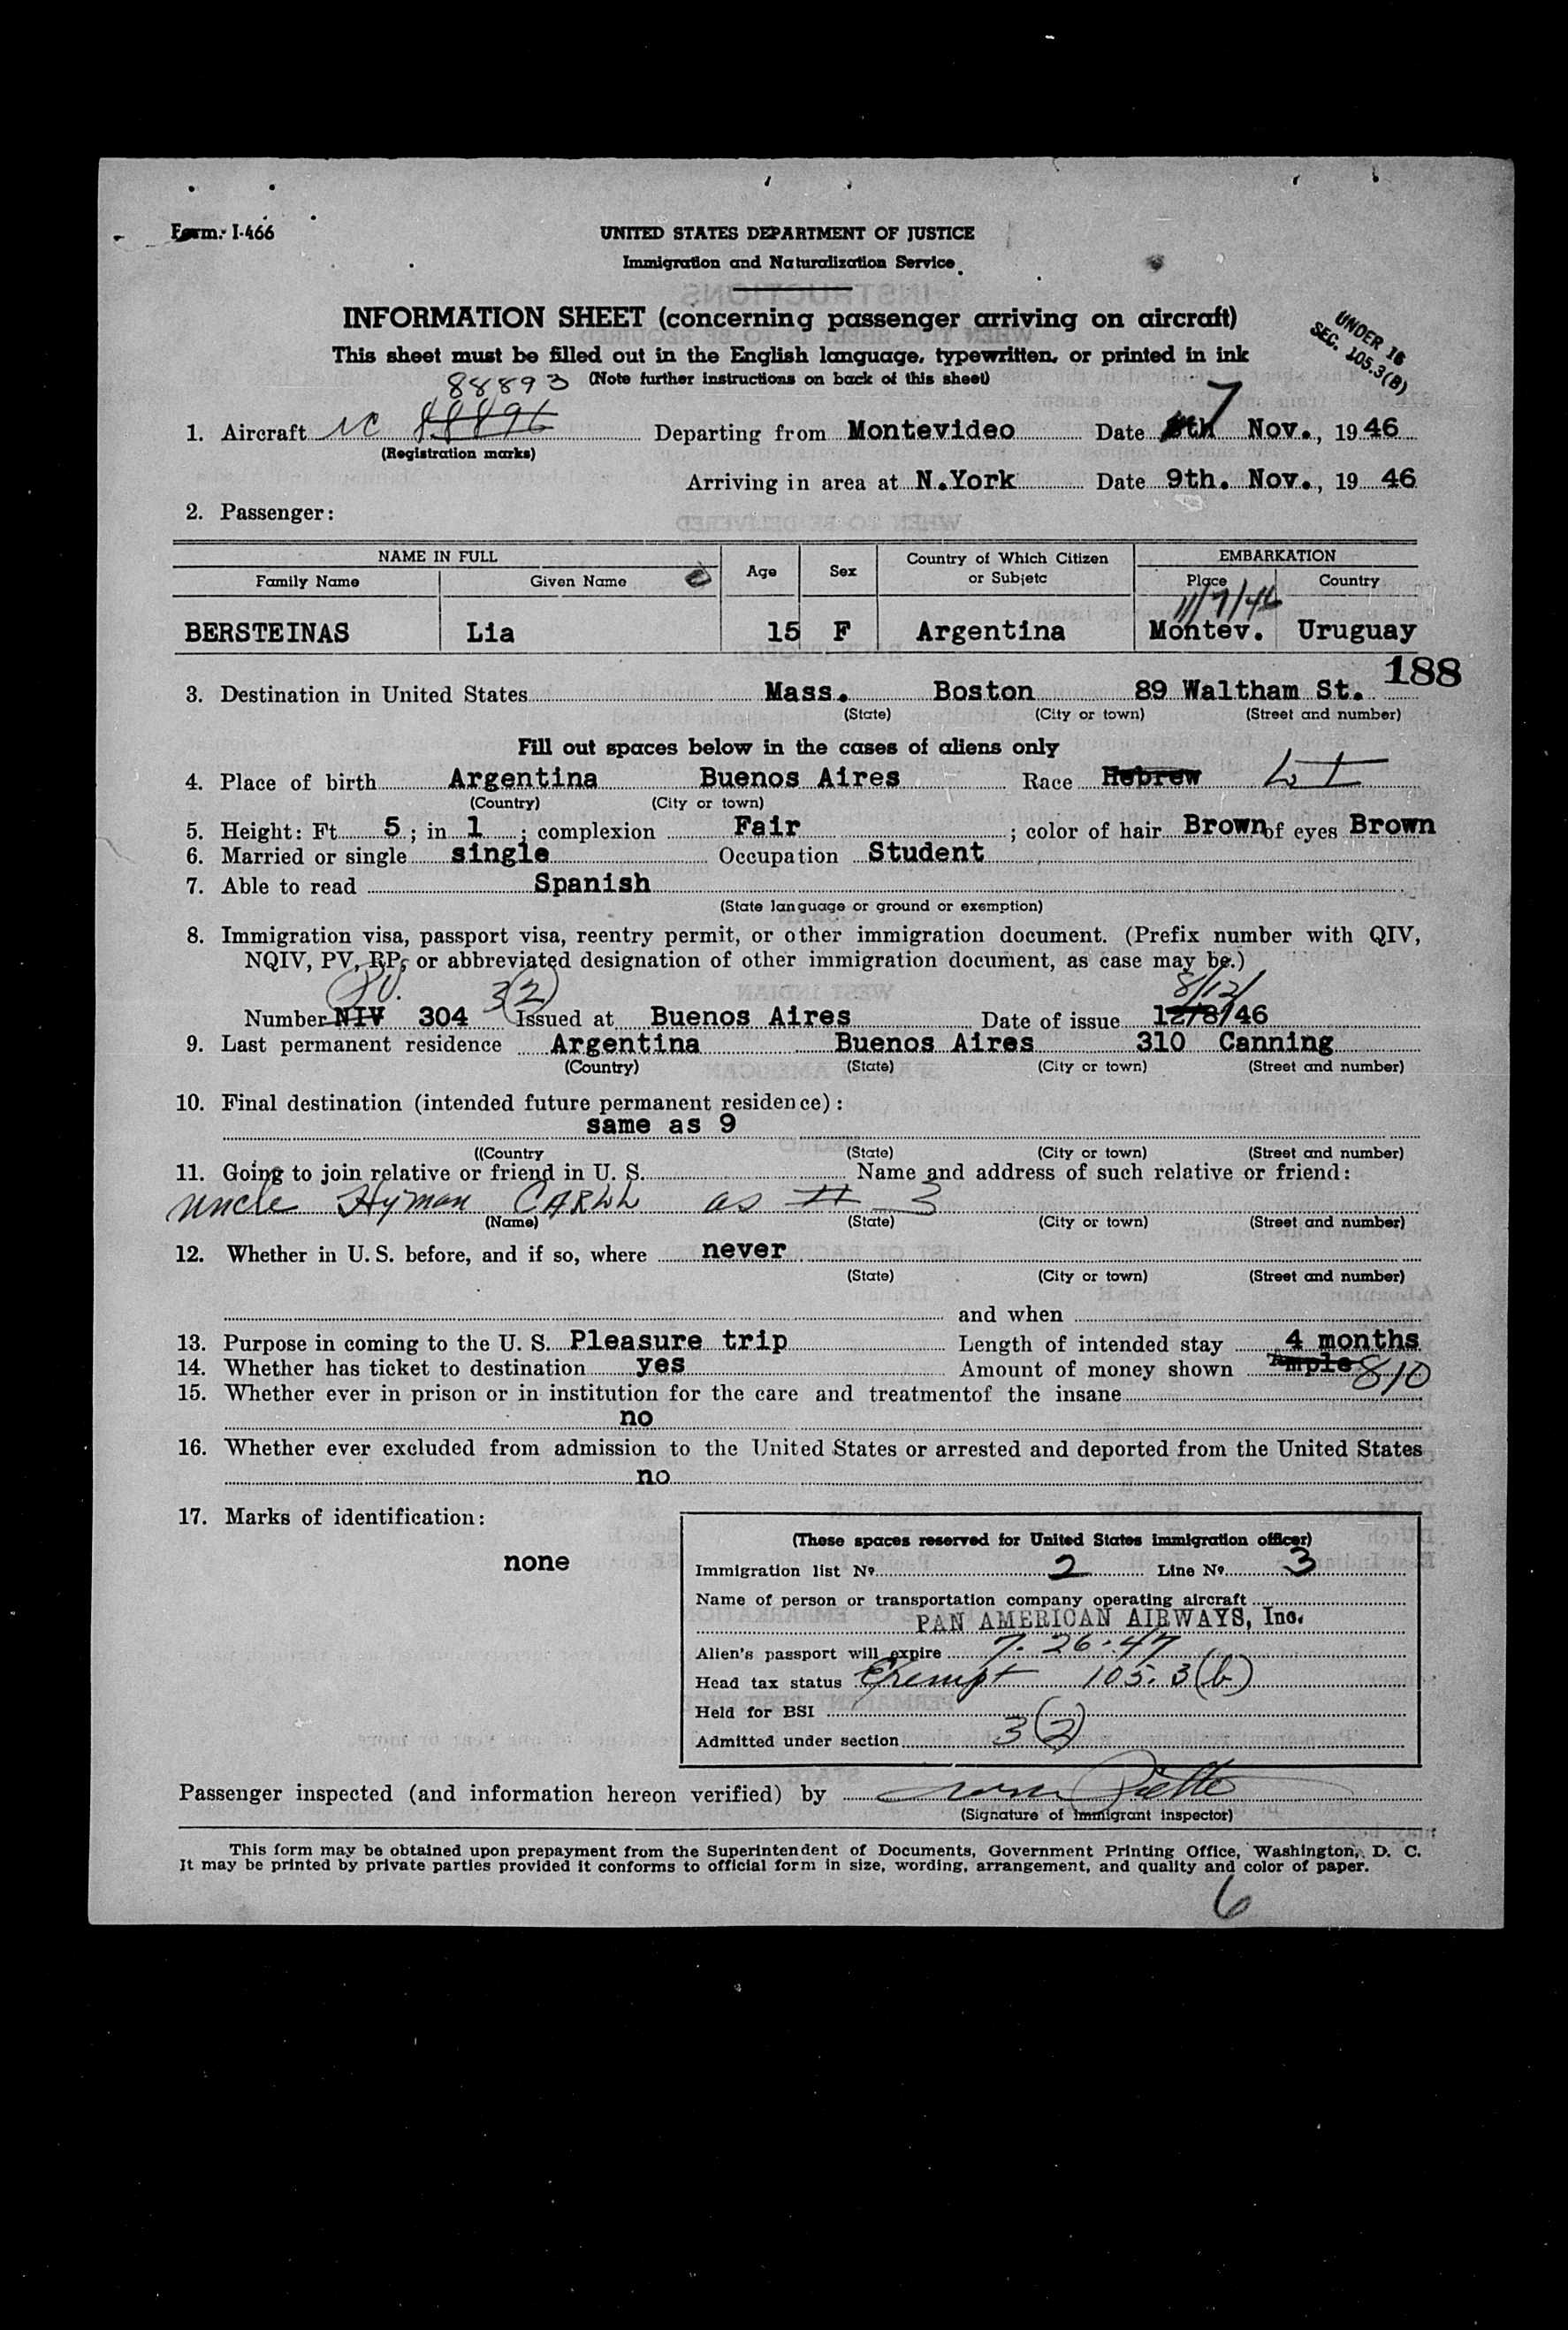 Form. I-466
UNITED STATES DEPARTMENT OF JUSTICE
Immigration and Naturalization Service
INFORMATION SHEET (concerning passenger arriving on aircraft)
UNDER 16
SEC. 105.3(B)
This sheet must be filled out in the English language, typewritten, or printed in ink
88893 (Note further instructions on back of this sheet)
1. Aircraft NC 88896 Departing from Montevideo Date 8th 7 Nov., 1946
(Registration marks)
Arriving in area at N.York Date 9th. Nov., 19 46
2. Passenger:
NAME IN FULL Age Sex Country of Which Citizen or Subjetc EMBARKATION
Family Name Given Name Place Country
11/7/46
BERSTEINAS Lia 15 F Argentina Montev. Uruguay
188
3. Destination in United States Mass. Boston 89 Waltham St.
(State) (City or town) (Street and number)
Fill out spaces below in the cases of aliens only
4. Place of birth Argentina Buenos Aires Race Hebrew
(Country) (City or town)
5. Height: Ft 5; in 1; complexion Fair; color of hair Brown of eyes Brown
6. Married or single single Occupation Student
7. Able to read Spanish
(State language or ground or exemption)
8. Immigration visa, passport visa, reentry permit, or other immigration document. (Prefix number with QIV,
NQIV, PV, RP, or abbreviated designation of other immigration document, as case may be.)
3(2) 8/12/
Number NIV 304 Issued at Buenos Aires Date of issue 12/8/46
9. Last permanent residence Argentina Buenos Aires 310 Canning
(Country) (State) (City or town) (Street and number)
10. Final destination (intended future permanent residence):
same as 9
((Country (State) (City or town) (Street and number)
11. Going to join relative or friend in U. S. Name and address of such relative or friend:
uncle Hyman as # 3
(Name) (State) (City or town) (Street and number)
12. Whether in U. S. before, and if so, where never
(State) (City or town) (Street and number)
and when
13. Purpose in coming to the U. S. Pleasure trip Length of intended stay 4 months
14. Whether has ticket to destination yes Amount of money shown Ample 810
15. Whether ever in prison or in institution for the care and treatmentof the insane
no
16. Whether ever excluded from admission to the United States or arrested and deported from the United States
no
17. Marks of identification:
none
(These spaces reserved for United States immigration officer)
Immigration list Nº 2 Line Nº 3
Name of person or transportation company operating aircraft
PAN AMERICAN AIRWAYS, Inc.
Alien's passport will expire 7-26-47
Head tax status Exempt 105.3(b)
Held for BSI
Admitted under section 3(2)
Passenger inspected (and information hereon verified) by
(Signature of immigrant inspector)
This form may be obtained upon prepayment from the Superintendent of Documents, Government Printing Office, Washington, D. C.
It may be printed by private parties provided it conforms to official form in size, wording, arrangement, and quality and color of paper.
6